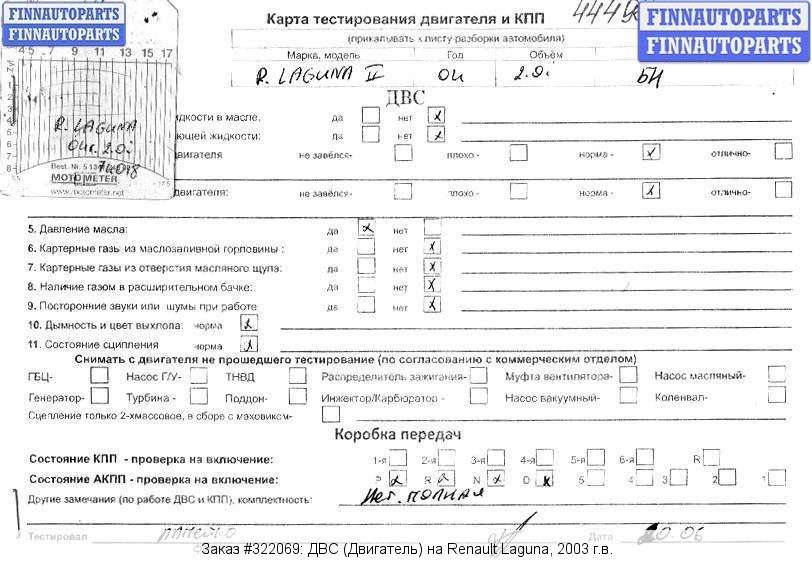 FINNAUTOPARTS
FINNAUTOPARTS
FINNAUTOPARTS
FINNAUTOPARTS
Карта тестирования двигателя и КПП
(прикалывать к листу разборки автомобиля)
Марка, модель Год Объём
R. LAGUNA II 2.0i
ДВС
4 5 7 9 11 13 15 17
R. LAGUNA
2.0i
Best. Nr. 513
MOTOMETER
www.motometer.net
17.5
идкости в масле. да нет x
ющей жидкости: да нет x
двигателя не завёлся- плохо - норма - x отлично-
двигателя: не завелся- плохо - норма - x отлично-
5. Давление масла: да x нет
6. Картерные газы из маслозаливной горловины : да нет x
7. Картерные газы из отверстия масляного щупа: да нет x
8. Наличие газом в расширительном бачке: да нет x
9. Посторонние звуки или шумы при работе да нет x
10. Дымность и цвет выхлопа: норма x
11. Состояние сцепления норма x
Снимать с двигателя не прошедшего тестирование (по согласованию с коммерческим отделом)
ГБЦ- Насос Г/У- ТНВД Распределитель зажигания- Муфта вентилятора- Насос масляный-
Генератор- Турбина - Поддон- Инжектор/Карбюратор - Насос вакуумный- Коленвал-
Сцепление только 2-хмассовое, в сборе с маховиком-
Коробка передач
Состояние КПП - проверка на включение: 1-я 2-я 3-я 4-я 5-я 6-я R
Состояние АКПП - проверка на включение: P x R x N x D x 5 4 3 2 1
Другие замечания (по работе ДВС и КПП), комплектность: полная
Тестировал Дата 06
Заказ #322069: ДВС (Двигатель) на Renault Laguna, 2003 г.в.